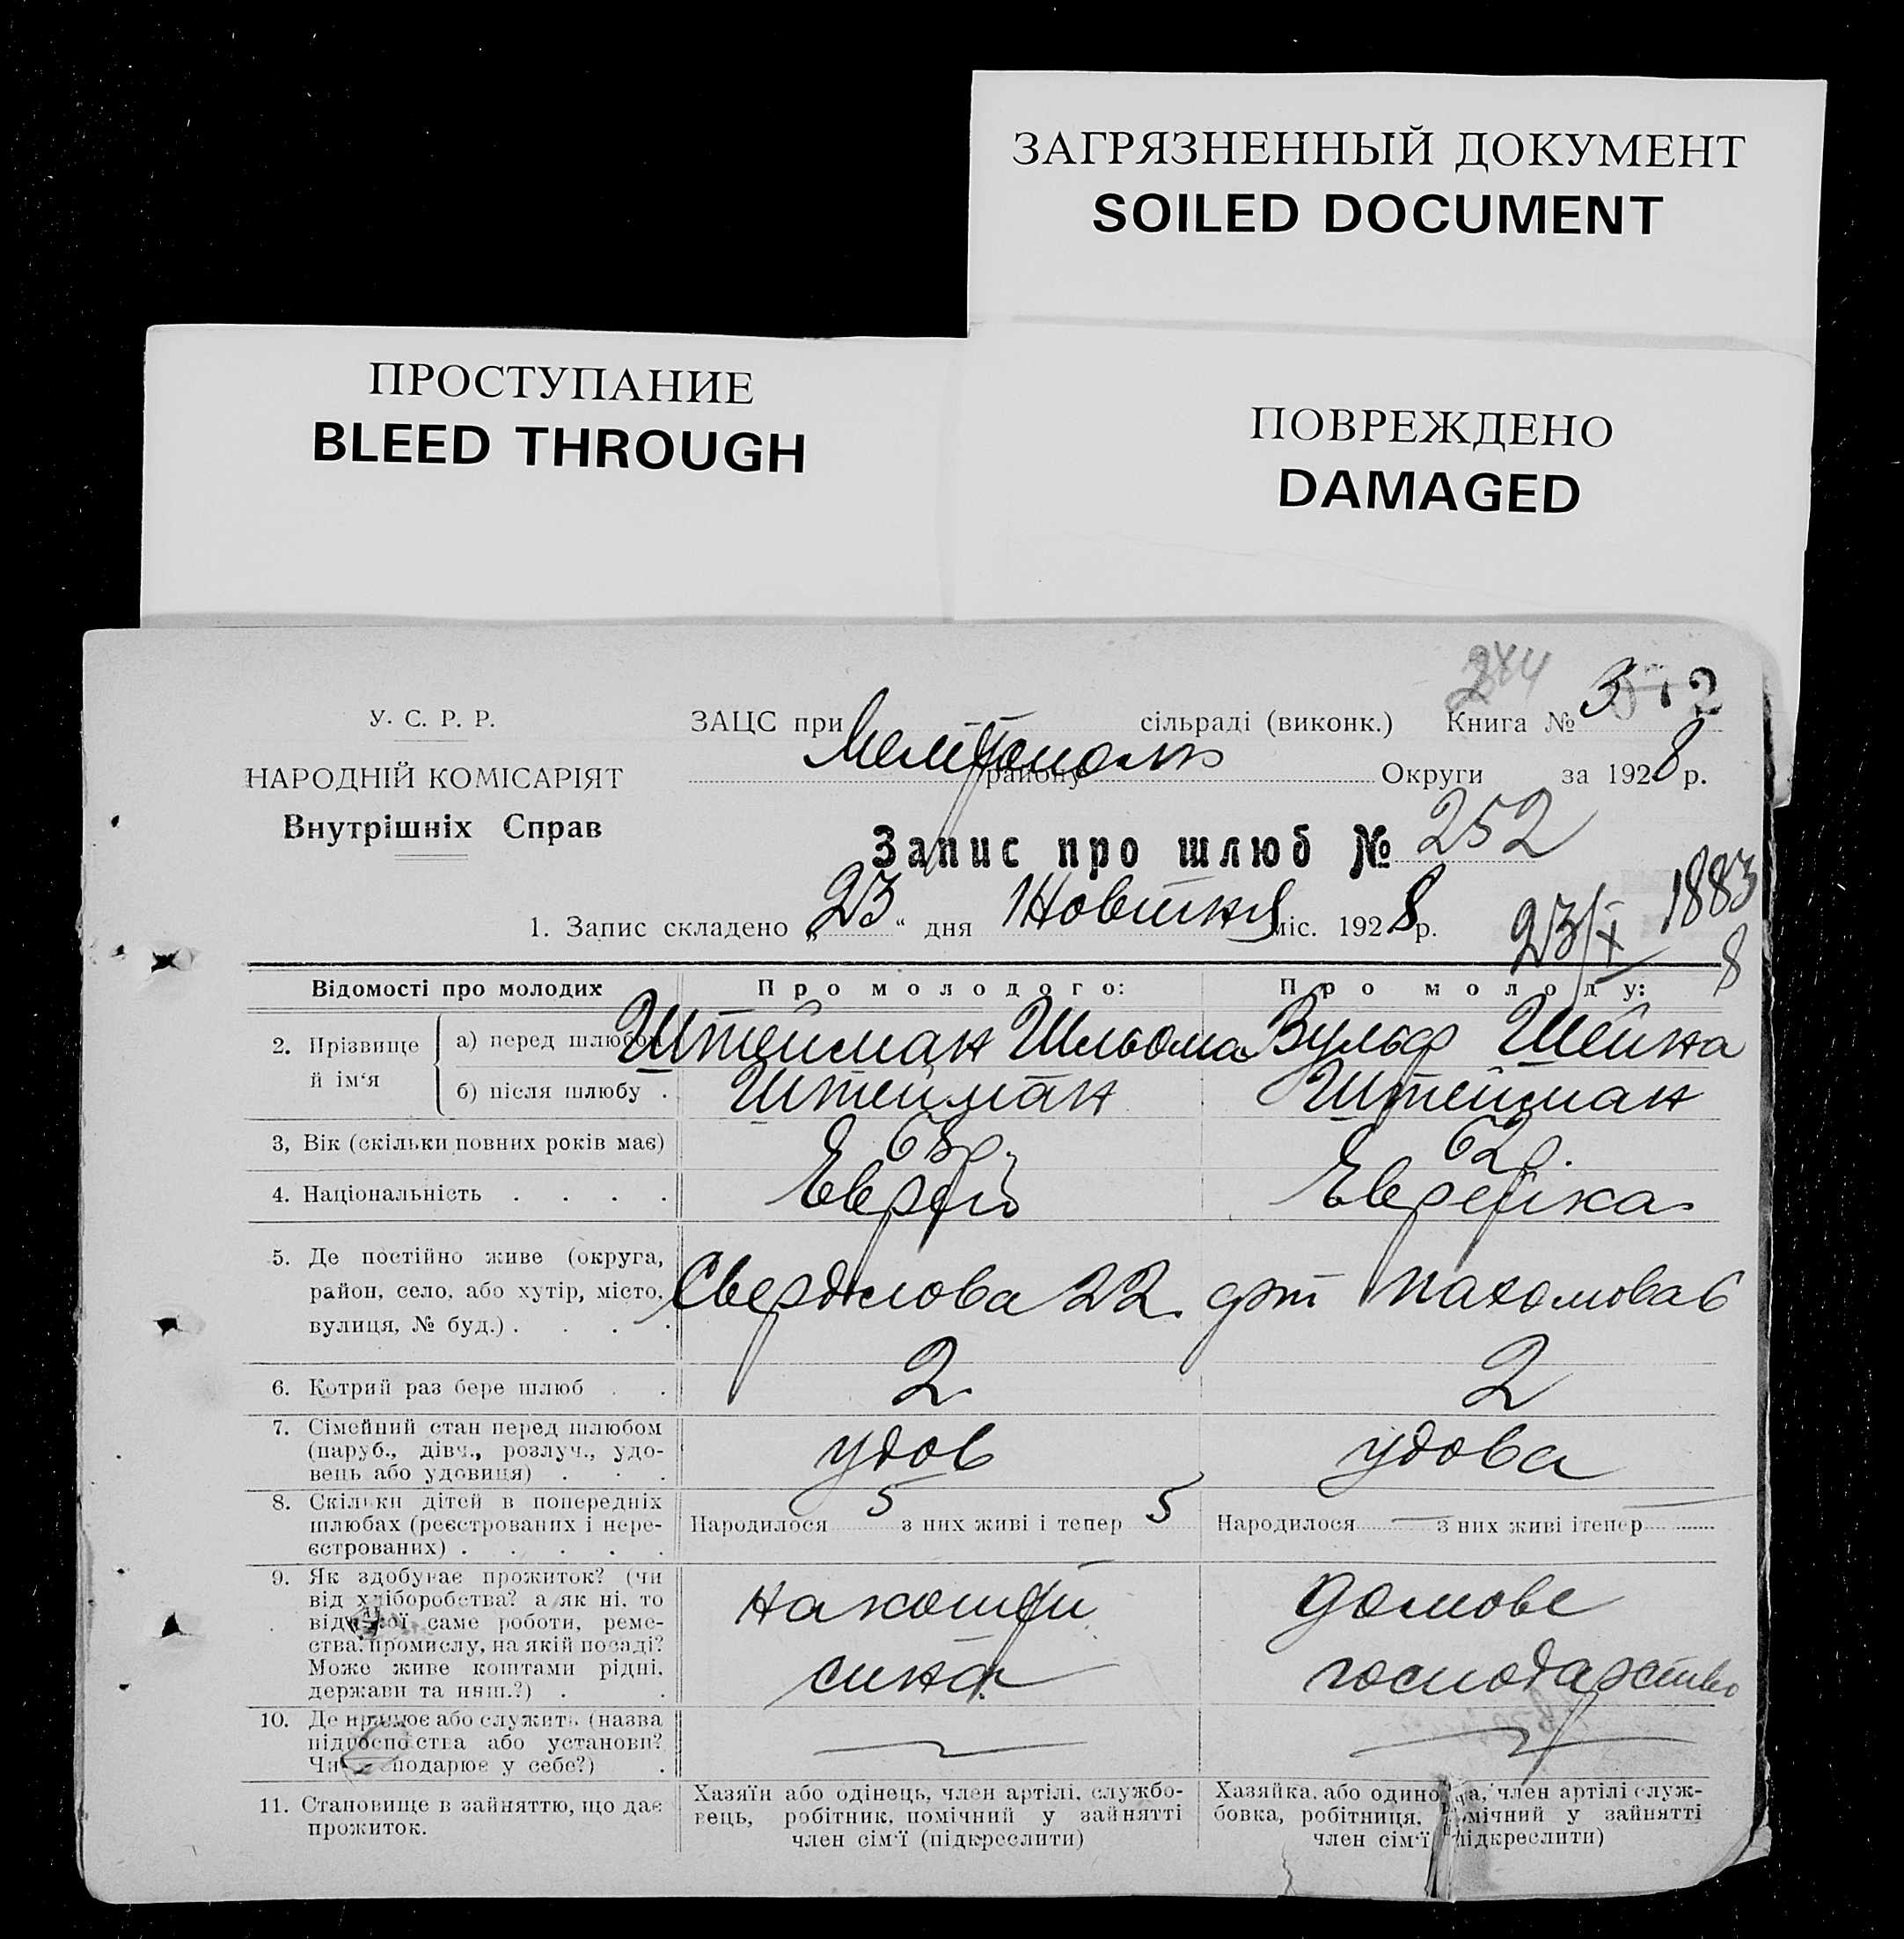 ЗАГРЯЗНЕННЫЙ ДОКУМЕНТ
SOILED DOCUMENT
ПРОСТУПАНИЕ
BLEED THROUGH
ПОВРЕЖДЕНО
DAMAGED
У. С. Р. Р.
НАРОДНІЙ КОМІСАРІЯТ
Внутрішніх Справ
ЗАЦС при сільраді (виконк.) Книга № 3
району Округи за 1928 р.
Запис про шлюб № 252
1. Запис складено „23“ дня Новтня міс. 1928 р.
23/X 1883
8
Відомості про молодих
Про молодого:
Про молоду:
2. Прізвище й ім‘я
а) перед шлюбом Штейман Шльома Вульф Шейна
б) після шлюбу . Штейман Штейман
3, Вік (скільки повних років має) 68р. 62р.
4. Національність . . . . Еврей Еврейка
5. Де постійно живе (округа,
район, село, або хутір, місто,
вулиця, № буд.) . . . .
Свердлова 22
Пахомова 6
6. Котрий раз бере шлюб . . 2 2
7. Сімейний стан перед шлюбом
(паруб., дівч., розлуч., удо-
вець або удовиця) . . .
удов
удова
8. Скільки дітей в попередніх
шлюбах (реєстрованих і нере-
єстрованих) . . . . .
Народилося 5 з них живі і тепер 5
Народилося — з них живі ітепер —
9. Як здобуває прожиток? (чи
від хліборобства? а як ні, то
від якої саме роботи, реме-
ства, промислу, на якій посаді?
Може живе коштами рідні,
держави та инш.?) . .
на кошти
сина
Домове
господарство
10. Де працює або служить (назва
підгоспо ства або установи?
Чи подарює у себе?) .
11. Становище в зайняттю, що дає
прожиток.
Хазяїн або одінець, член артілі, службо-
вець, робітник, помічний у зайнятті
член сім‘ї (підкреслити)
Хазяйка, або одино ка, член артілі служ-
бовка, робітниця, помічний у зайнятті
член сім‘ї підкреслити)